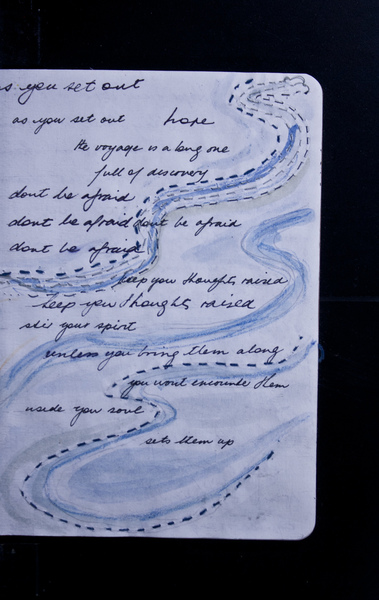 as you set out
as you set out hope
the voyage is a long one
full of discovery
dont be afraid
dont be afraid dont be afraid
dont be afraid
keep you thoughts raised
keep you thoughts raised
stir your spirit
unless you bring them along
you wont encounte them
inside you soul
sets them up